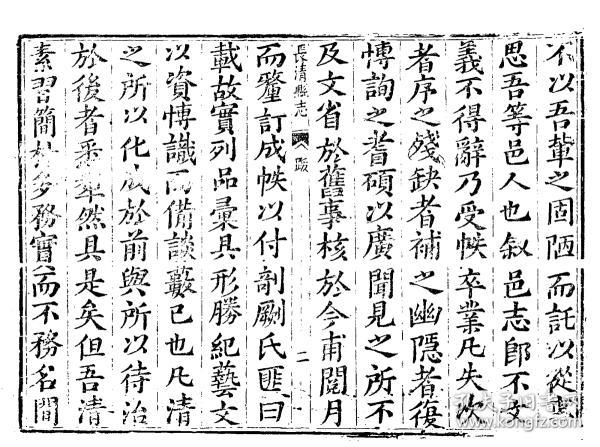 不以吾輩之固陋而託以從
思吾等邑人也敘邑志郎不文
義不得辭乃受帙卒業凡失次
者序之殘缺者補之幽隱者復
博詢之耆碩以廣聞見之所不
及文省於舊事核於今甫閱月
長清縣志 跋 二
而釐訂成帙以付剞劂氏匪曰
載故實列品彙具形勝紀藝文
以資博識而備談藪已也凡清
之所以化成於前與所以待治
於後者悉犂然具是矣但吾清
素習簡朴多務實而不務名間